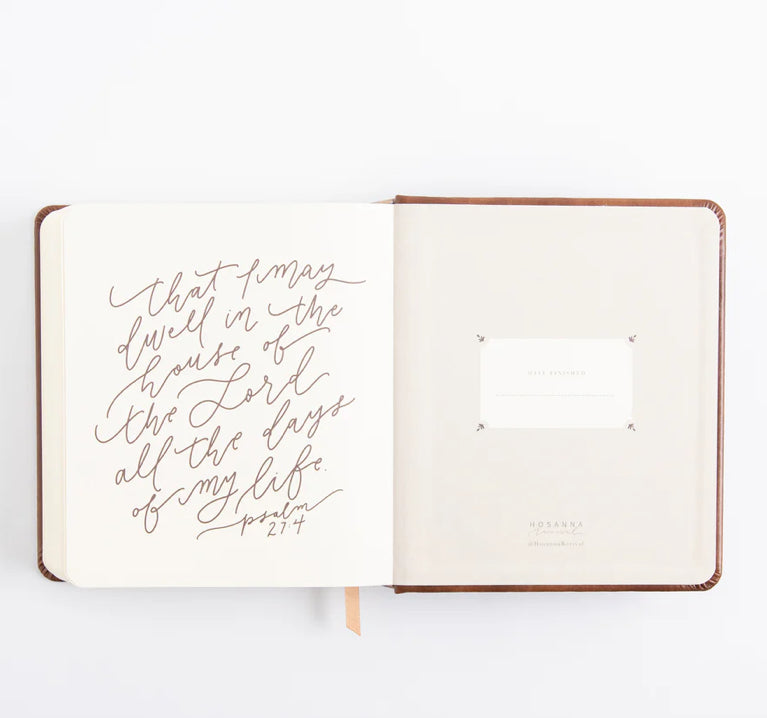 that I may
dwell in the
house of
the Lord
all the days
of my life.
psalm
27:4
DATE FINISHED
HOSANNA
revival
@HosannaRevival